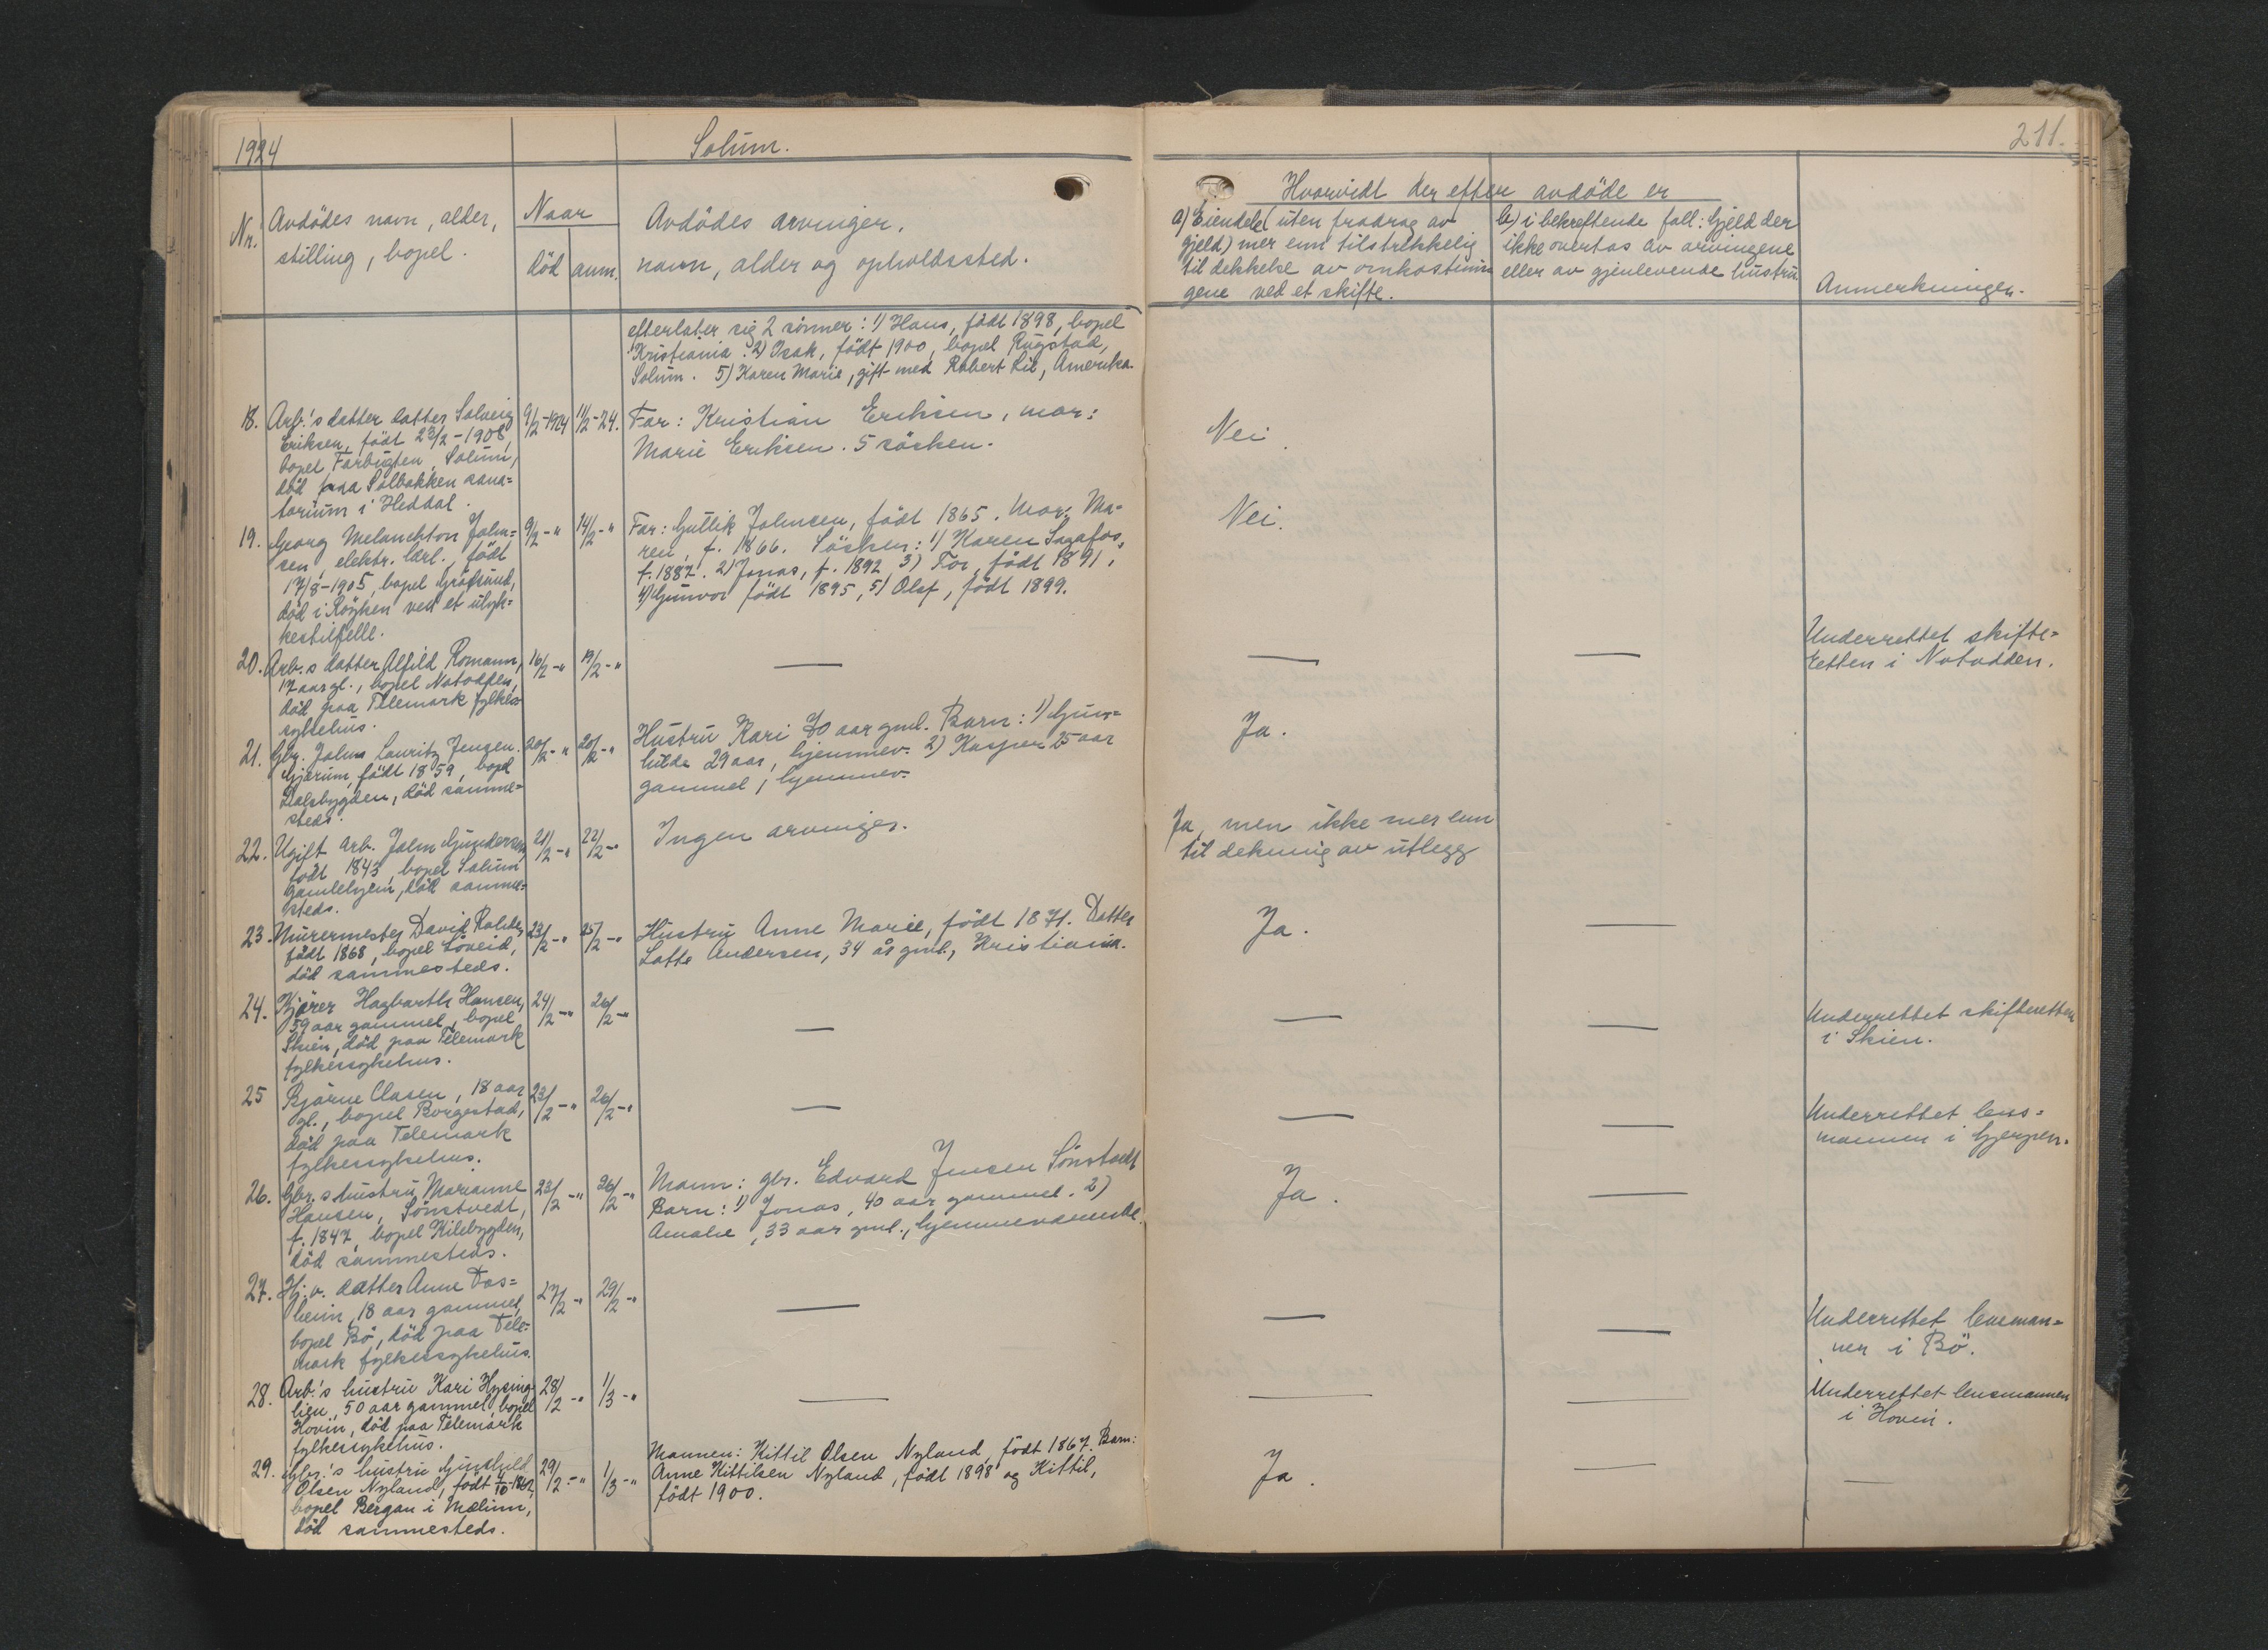 1924 Solum. 211.
Nr. Avdödes navn, alder,
stilling, bopel.
Naar
död anm.
Avdödes arvinger,
navn, alder og opholdssted.
Hvorvidt der efter avdöde er
a) Eiendele (uten fradrag av
gjeld) mer enn tilstrekkelig
til dekkelse av omkostnin
gene ved et skifte.
b) i bekreftende fall: Gjeld der
ikke overtas av arvingene
eller av gjenlevende hustru
Anmerkninger.
efterlater sig 2 sönner: 1) Hans, födt 1898, bopel
Kristiania. 2) Isak, födt 1900, bopel Rugstad,
Solum. 5) Karen Marie, gift med Robert Lie, Amerika.
18. Arb.'s datter datter Solveig
Eriksen, födt 23/2-1908,
bopel Farbugten, Solum,
död paa Solbakken sana=
torium i Heddal.
9/2-1924 11/2-24.
Far: Kristian Eriksen, mor:
Marie Eriksen. 5 sösken.
Nei.
19. Georg Melanchton John=
sen, elektr. lærl., födt
17/8-1905, bopel Gråtsund,
död i Röyken ved et ulyk=
kestilfelle.
9/2-" 14/2-"
Far: Gullik Johnsen, födt 1865. Mor: Ma=
ren, f. 1866. Sösken: 1) Karen Sagafos,
f. 1887. 2) Jonas, f. 1892 3) Tor, födt 1891,
4) Gunvor födt 1895, 5) Olaf, födt 1899.
Nei.
20. Arb.s datter Alfild Romann,
17 aar gl., bopel Notodden,
död paa Telemark fylkes=
sykehus.
16/2-" 19/2-"
— — —
Underrettet skifte=
retten i Notodden.
21. Gbr. Johns Lauritz Jensen
Gjærum, födt 1859, bopel
Dalsbygden, död samme=
steds.
20/2-" 20/2-"
Hustru Kari 70 aar gml. Barn: 1) Gun=
hilda 29 aar, hjemmev. 2) Kasper 25 aar
gammel, hjemmev.
Ja.
22. Ugift arb. John Gundersen,
födt 1843, bopel Solum
gamlehjem, död samme=
steds.
21/2-" 22/2-"
Ingen arvinger.
Ja, men ikke mer enn
til dekning av utlegg
23. Murermester David Rohder,
födt 1868, bopel Löveid,
död sammesteds.
23/2-" 25/2-"
Hustru Anne Marie, födt 1871. Datter
Lotte Andersen, 34 år gml., Kristiania.
Ja. —
24. Kjörer Hagbarth Hansen,
59 aar gammel, bopel
Skien, död paa Telemark
fylkessykehus.
24/2-" 26/2-"
— — —
Underrettet skifteretten
i Skien.
25 Bjarne Clasen, 18 aar
gl., bopel Borgestad,
död paa Telemark
fylkessykehus.
23/2-" 26/2-"
— — —
Underrettet lens=
mannen i Gjerpen.
26. Gbr.s hustru Marianne
Hansen, Sönstvedt,
f. 1847, bopel Kilebygden,
död sammesteds.
23/2-" 26/2-"
Mann: gbr. Edvard Jensen Sönstvedt
Barn: 1) Jonas, 40 aar gammel. 2)
Amalie, 33 aar gml., hjemmeværende.
Ja. —
27. Hj. v. datter Anne Dos=
heim, 18 aar gammel,
bopel Bö, död paa Tele=
mark fylkessykehus.
27/2-" 29/2-"
— — —
Underrettet lensman=
nen i Bö.
28. Arb.'s hustru Kari Hysing=
lien, 50 aar gammel, bopel
Hovin, död paa Telemark
fylkessykehus.
28/2-" 1/3-"
— — —
Underrettet lensmannen
i Hovin.
29. Gbr.'s hustru Gunhild
Olsen Nyland, födt 4/10-1867,
bopel Bergan i Mælum,
död sammesteds.
29/2-" 1/3-"
Mannen: Kittil Olsen Nyland, födt 1867. Barn:
Anne Kittilsen Nyland, födt 1898 og Kittil,
födt 1900.
Ja. — —